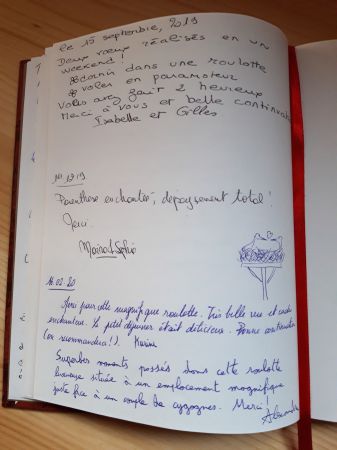 le 15 septembre, 2019
Deux vœux réalisés en un
weekend!
dormir dans une roulotte
voler en paramoteur
Vous avez fait 2 heureux
Merci à vous et belle continuat
Isabelle et Gilles
19
Parenthèse enchantée, dépaysement total!
Merci.
Sophie
16.02.20
Merci pour cette magnifique roulotte. Très belle vue et cadre
enchanteur. Le petit déjeuner était délicieux. Bonne continuation
(on recommandera!). Karine
Superbes moments passés dans cette roulotte
luxueuse située à un emplacement magnifique
juste face à un couple de cygognes. Merci!
Alexandre